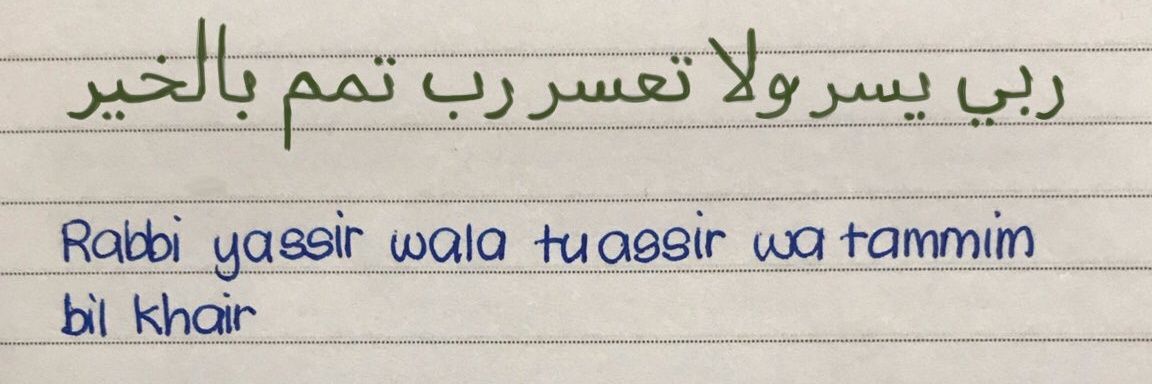 ربي يسر ولا تعسر رب تمم بالخير
Rabbi yassir wala tuassir wa tammim
bil khair